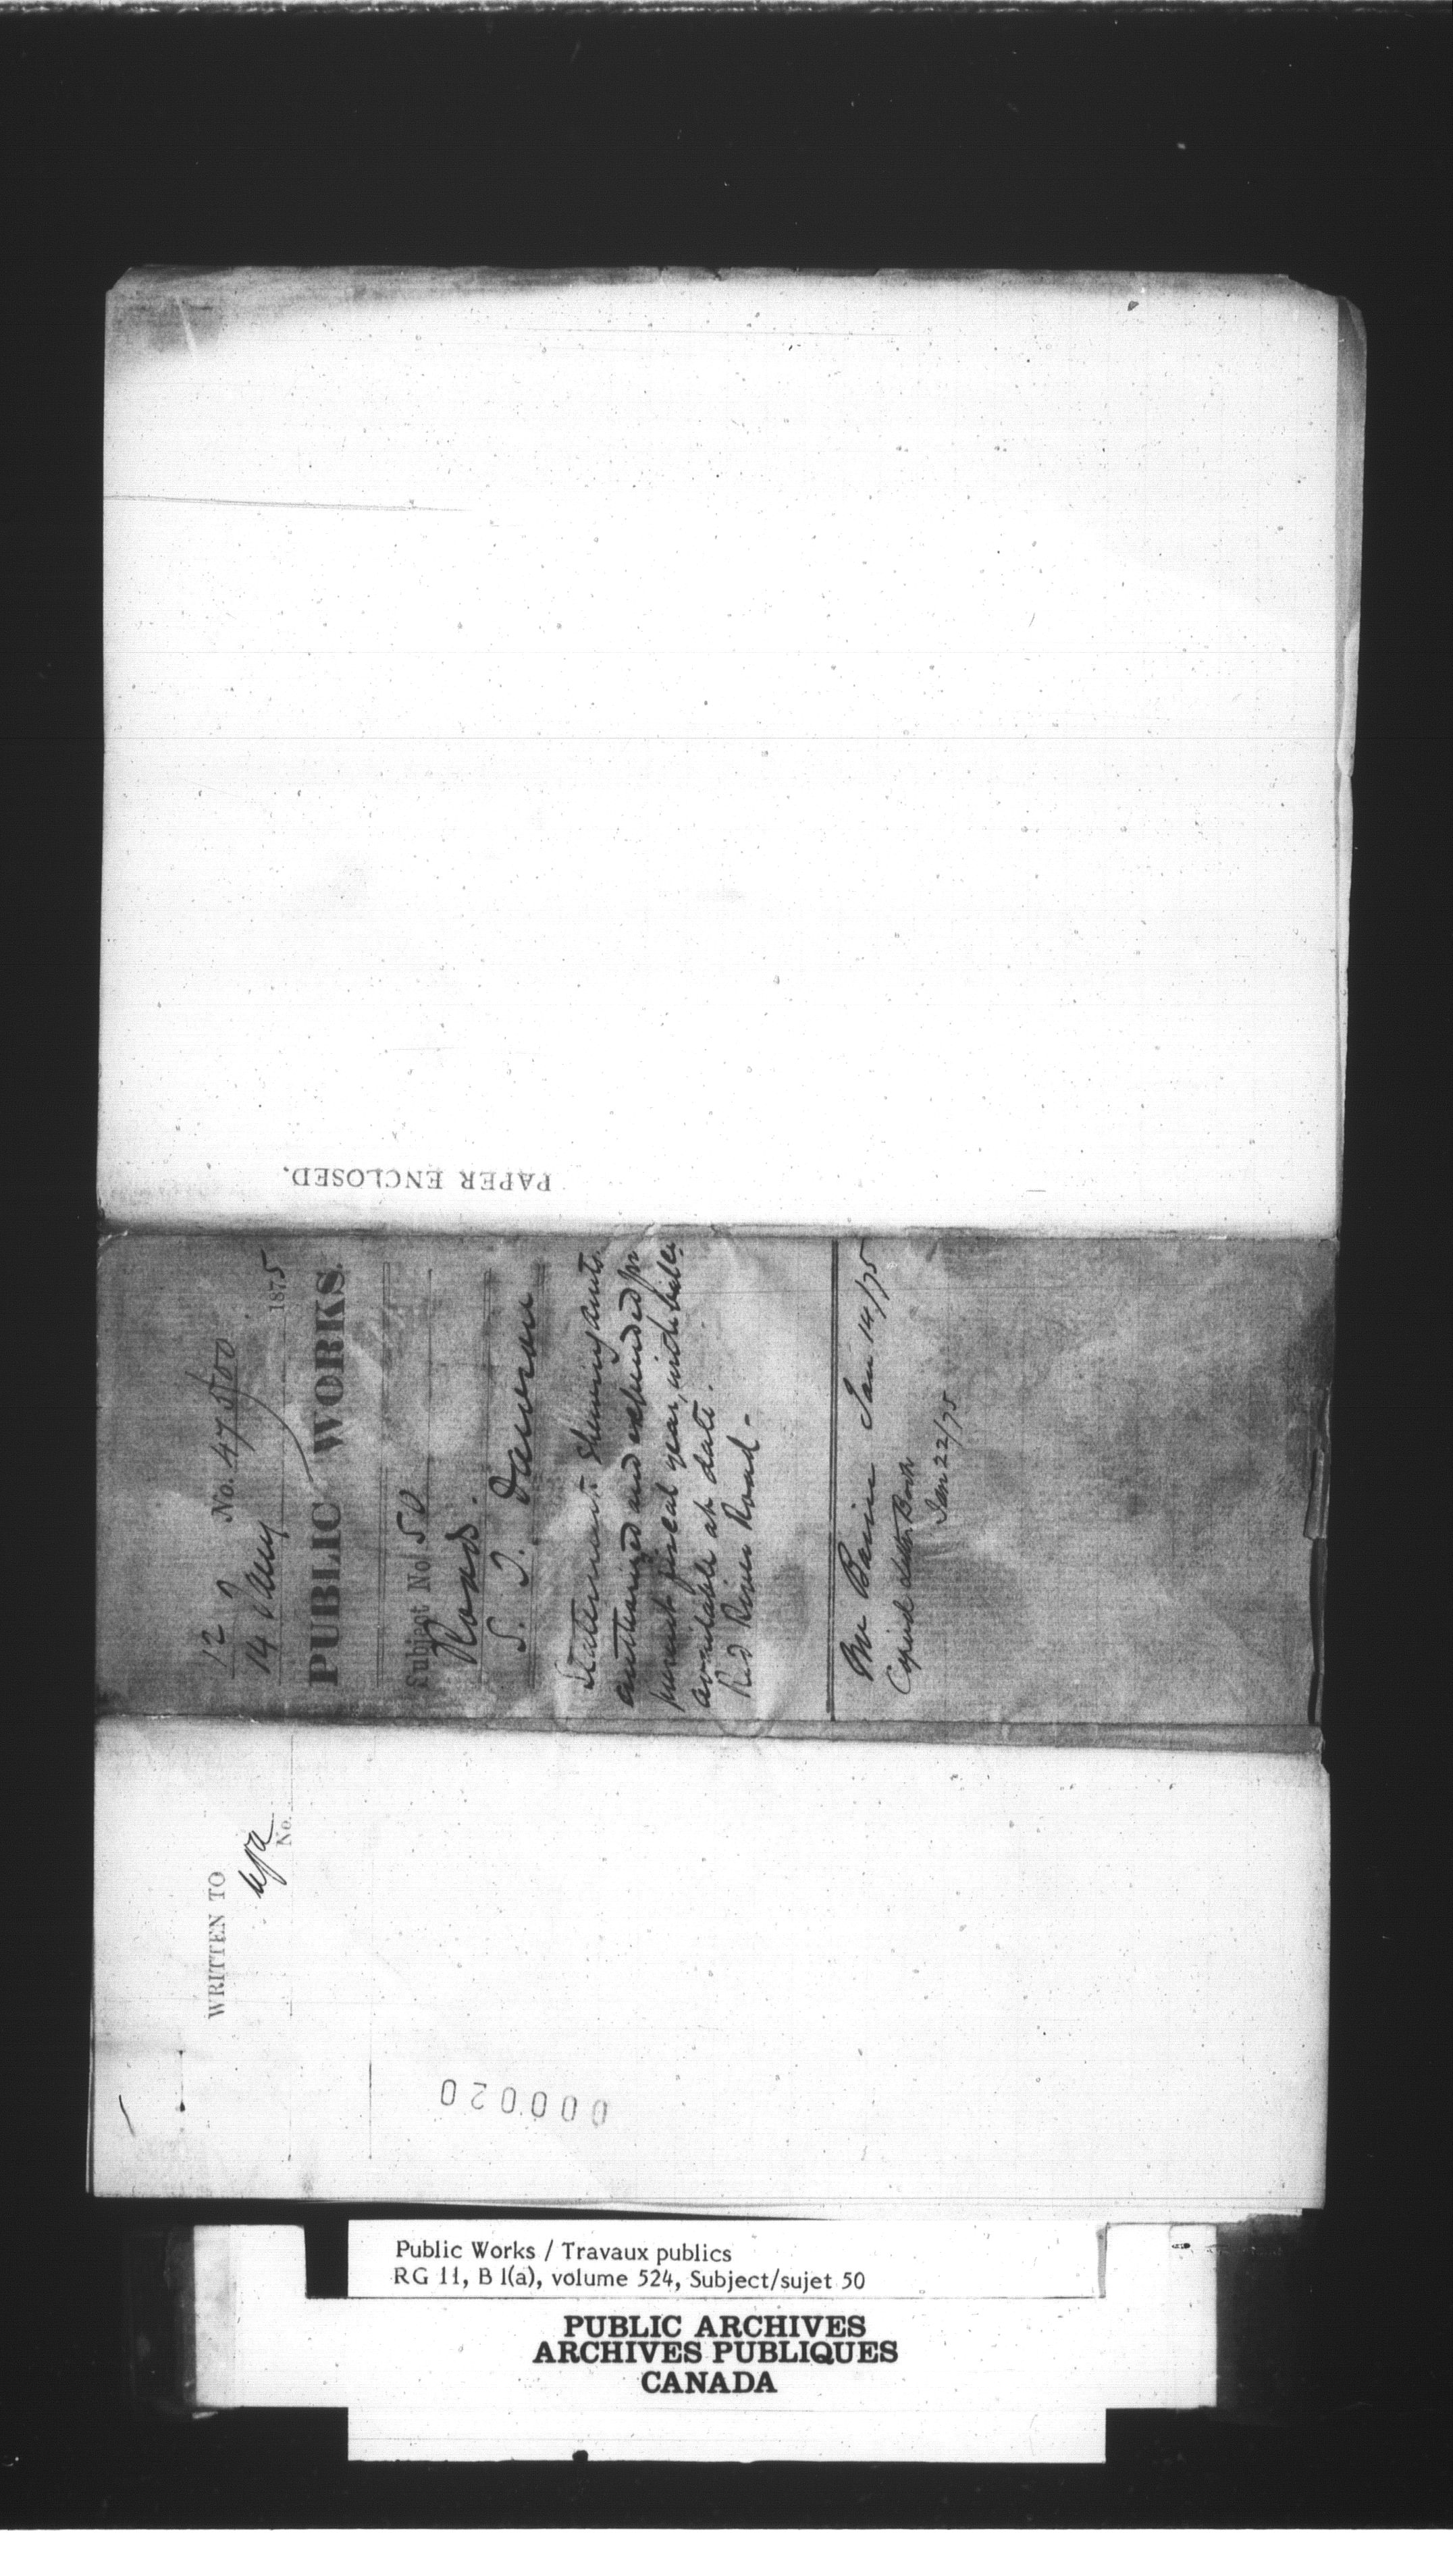 PAPER ENCLOSED.
12 No. 47500
14 Jany 1875
PUBLIC WORKS.
Subject No. 50
Roads.
S. J. Dawson
Statement: Shewing amts.
authorized and expended for
present fiscal year, with balce.
available at date.
Red River Road -
Mr Baine Jan 14/75
Copied Letter Book
Jan 22/75
WRITTEN TO
No.
000020
Public Works / Travaux publics
RG 11, B 1(a), volume 524, Subject/sujet 50
PUBLIC ARCHIVES
ARCHIVES PUBLIQUES
CANADA